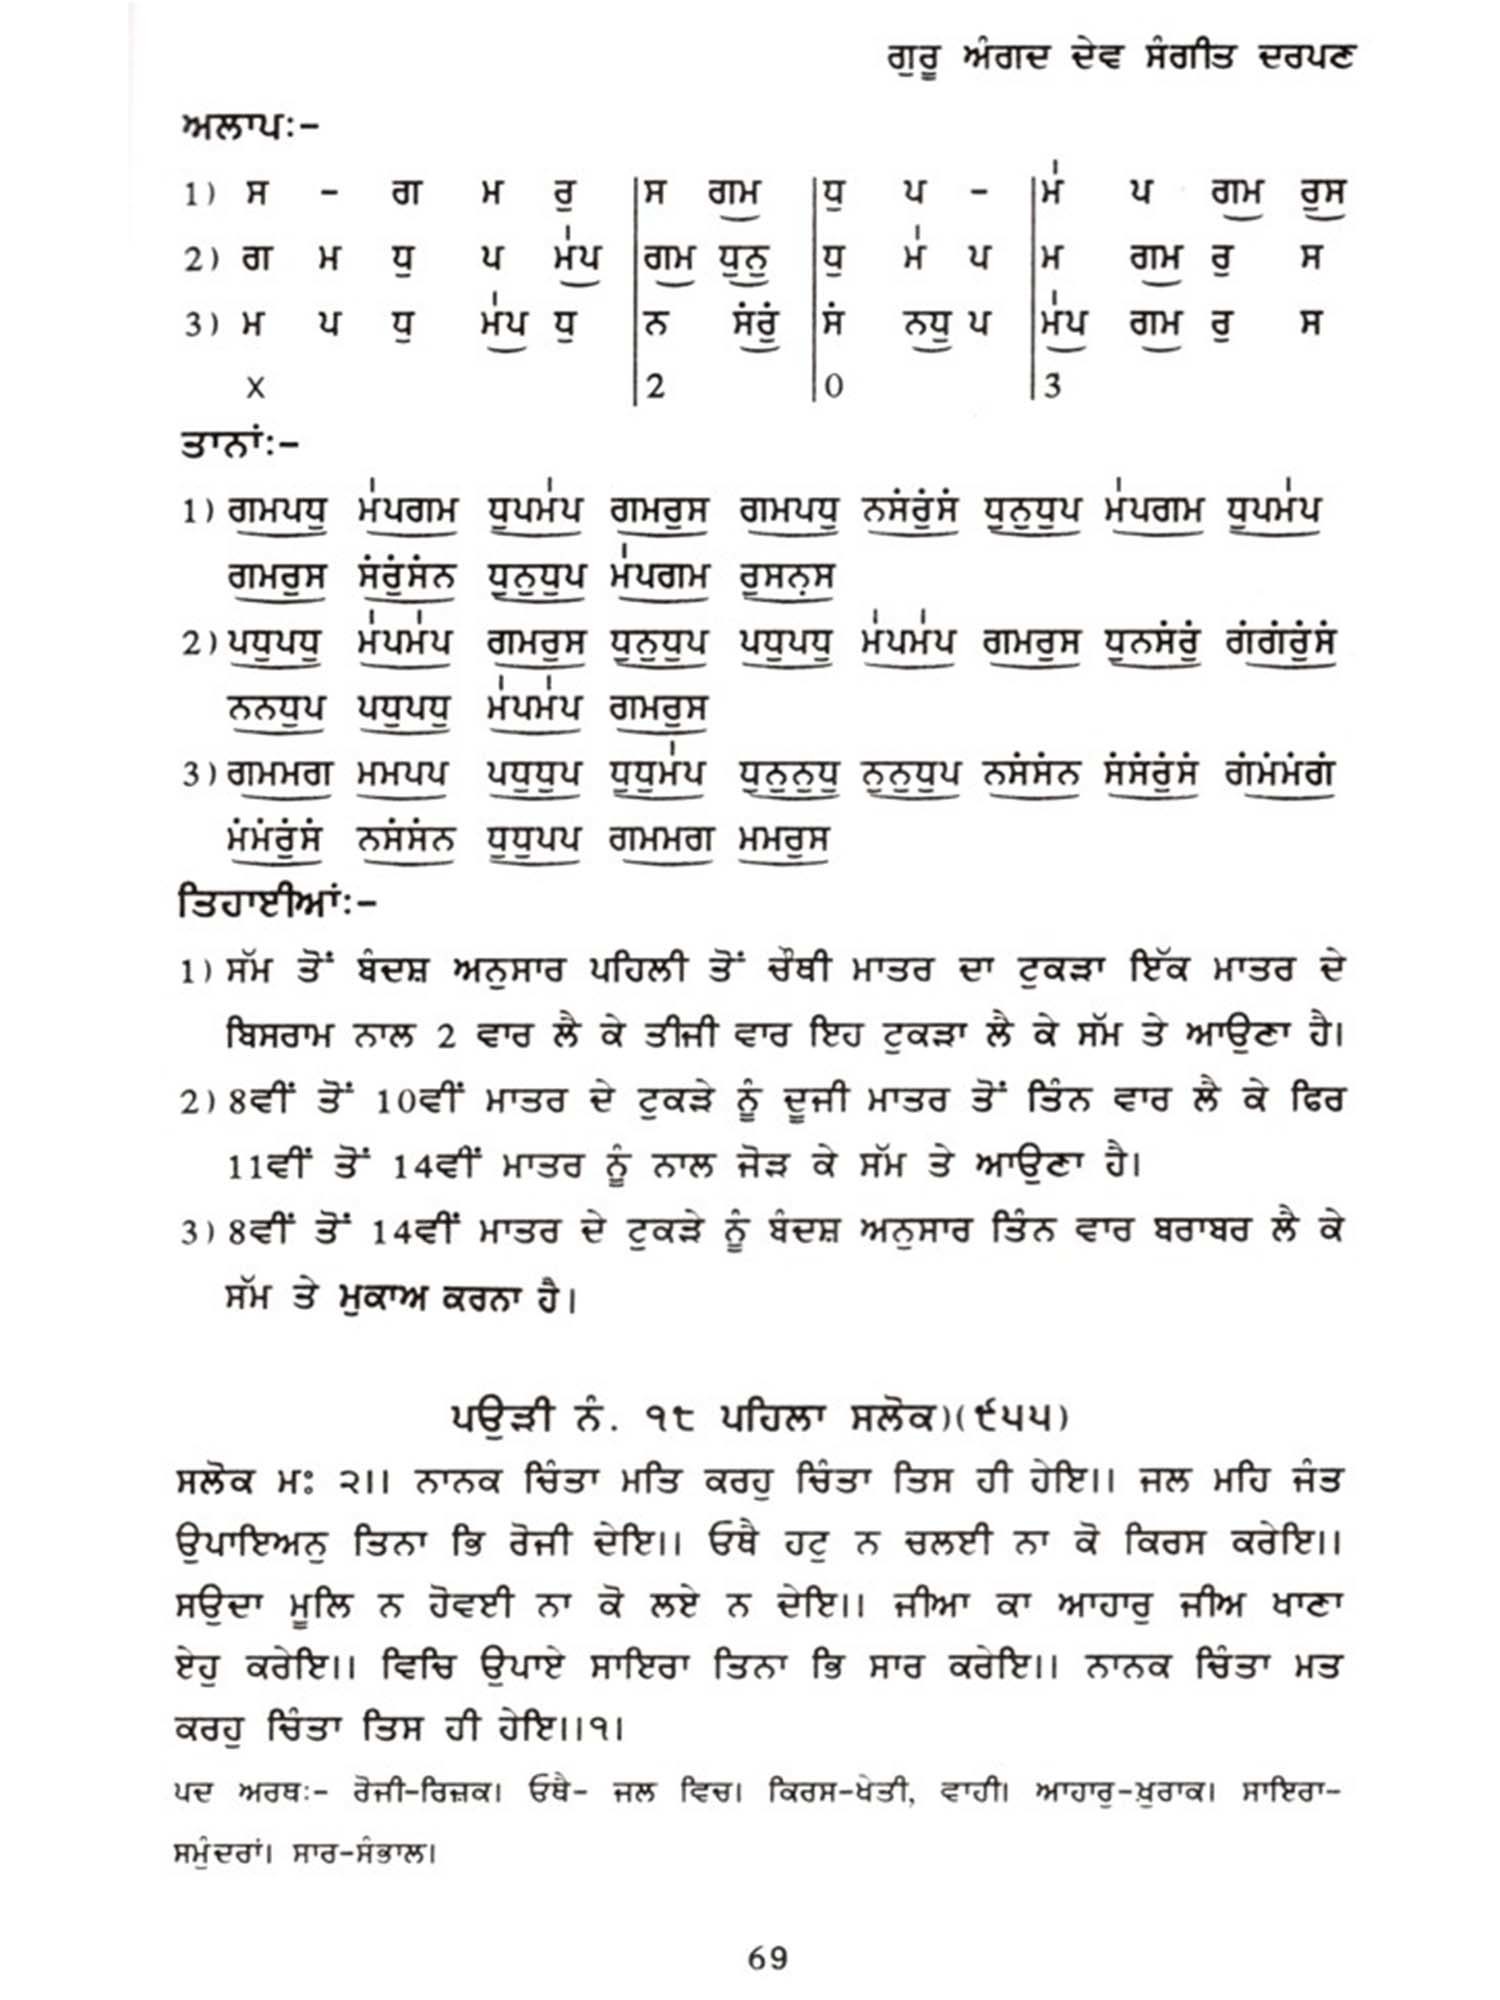 ਗੁਰੂ ਅੰਗਦ ਦੇਵ ਸੰਗੀਤ ਦਰਪਣ
ਅਲਾਪ:-
1) ਸ - ਗ ਮ ਰੁ | ਸ ਗਮ | ਧੁ ਪ - | ਮ੍ਹੇ ਪ ਗਮ ਰੁਸ
2) ਗ ਮ ਧੁ ਪ ਮ਼ਪ | ਗਮ ਧੁਨੁ | ਧੁ ਮ਼ ਪ | ਮ ਗਮ ਰੁ ਸ
3) ਮ ਪ ਧੁ ਮ਼ਪ ਧੁ | ਨ ਸੰਰੁੰ | ਸੰ ਨਧੁ ਪ | ਮ਼ਪ ਗਮ ਰੁ ਸ
X | 2 | 0 | 3
ਤਾਨਾਂ:-
1) ਗਮਪਧੁ ਮ਼ਪਗਮ ਧੁਪਮ਼ਪ ਗਮਰੁਸ ਗਮਪਧੁ ਨਸੰਰੁੰਸੰ ਧੁਨੁਧੁਪ ਮ਼ਪਗਮ ਧੁਪਮ਼ਪ
ਗਮਰੁਸ ਸੰਰੁੰਸੰਨ ਧੁਨੁਧੁਪ ਮ਼ਪਗਮ ਰੁਸਨ਼ਸ
2) ਪਧੁਪਧੁ ਮ਼ਪਮ਼ਪ ਗਮਰੁਸ ਧੁਨੁਧੁਪ ਪਧੁਪਧੁ ਮ਼ਪਮ਼ਪ ਗਮਰੁਸ ਧੁਨਸੰਰੁੰ ਗੰਗੰਰੁੰਸੰ
ਨਨਧੁਪ ਪਧੁਪਧੁ ਮ਼ਪਮ਼ਪ ਗਮਰੁਸ
3) ਗਮਮਗ ਮਮਪਪ ਪਧੁਧੁਪ ਧੁਧੁਮ਼ਪ ਧੁਨੁਨੁਧੁ ਨੁਨੁਧੁਪ ਨਸੰਸੰਨ ਸੰਸੰਰੁੰਸੰ ਗੰਮੰਮੰਗੰ
ਮੰਮੰਰੁੰਸੰ ਨਸੰਸੰਨ ਧੁਧੁਪਪ ਗਮਮਗ ਮਮਰੁਸ
ਤਿਹਾਈਆਂ:-
1) ਸੱਮ ਤੋਂ ਬੰਦਸ਼ ਅਨੁਸਾਰ ਪਹਿਲੀ ਤੋਂ ਚੌਥੀ ਮਾਤਰ ਦਾ ਟੁਕੜਾ ਇੱਕ ਮਾਤਰ ਦੇ
ਬਿਸਰਾਮ ਨਾਲ 2 ਵਾਰ ਲੈ ਕੇ ਤੀਜੀ ਵਾਰ ਇਹ ਟੁਕੜਾ ਲੈ ਕੇ ਸੱਮ ਤੇ ਆਉਣਾ ਹੈ।
2) 8ਵੀਂ ਤੋਂ 10ਵੀਂ ਮਾਤਰ ਦੇ ਟੁਕੜੇ ਨੂੰ ਦੂਜੀ ਮਾਤਰ ਤੋਂ ਤਿੰਨ ਵਾਰ ਲੈ ਕੇ ਫਿਰ
11ਵੀਂ ਤੋਂ 14ਵੀਂ ਮਾਤਰ ਨੂੰ ਨਾਲ ਜੋੜ ਕੇ ਸੱਮ ਤੇ ਆਉਣਾ ਹੈ।
3) 8ਵੀਂ ਤੋਂ 14ਵੀਂ ਮਾਤਰ ਦੇ ਟੁਕੜੇ ਨੂੰ ਬੰਦਸ਼ ਅਨੁਸਾਰ ਤਿੰਨ ਵਾਰ ਬਰਾਬਰ ਲੈ ਕੇ
ਸੱਮ ਤੇ ਮੁਕਾਅ ਕਰਨਾ ਹੈ।
ਪਉੜੀ ਨੰ. ੧੮ ਪਹਿਲਾ ਸਲੋਕ)(੯੫੫)
ਸਲੋਕ ਮਃ ੨।। ਨਾਨਕ ਚਿੰਤਾ ਮਤਿ ਕਰਹੁ ਚਿੰਤਾ ਤਿਸ ਹੀ ਹੇਇ।। ਜਲ ਮਹਿ ਜੰਤ
ਉਪਾਇਅਨੁ ਤਿਨਾ ਭਿ ਰੋਜੀ ਦੇਇ।। ਓਥੈ ਹਟੁ ਨ ਚਲਈ ਨਾ ਕੋ ਕਿਰਸ ਕਰੇਇ।।
ਸਉਦਾ ਮੂਲਿ ਨ ਹੋਵਈ ਨਾ ਕੋ ਲਏ ਨ ਦੇਇ।। ਜੀਆ ਕਾ ਆਹਾਰੁ ਜੀਅ ਖਾਣਾ
ਏਹੁ ਕਰੇਇ।। ਵਿਚਿ ਉਪਾਏ ਸਾਇਰਾ ਤਿਨਾ ਭਿ ਸਾਰ ਕਰੇਇ।। ਨਾਨਕ ਚਿੰਤਾ ਮਤ
ਕਰਹੁ ਚਿੰਤਾ ਤਿਸ ਹੀ ਹੇਇ।।੧।
ਪਦ ਅਰਥ:- ਰੋਜੀ-ਰਿਜ਼ਕ। ਓਥੈ- ਜਲ ਵਿਚ। ਕਿਰਸ-ਖੇਤੀ, ਵਾਹੀ। ਆਹਾਰੁ-ਖ਼ੁਰਾਕ। ਸਾਇਰਾ-
ਸਮੁੰਦਰਾਂ। ਸਾਰ-ਸੰਭਾਲ।
69